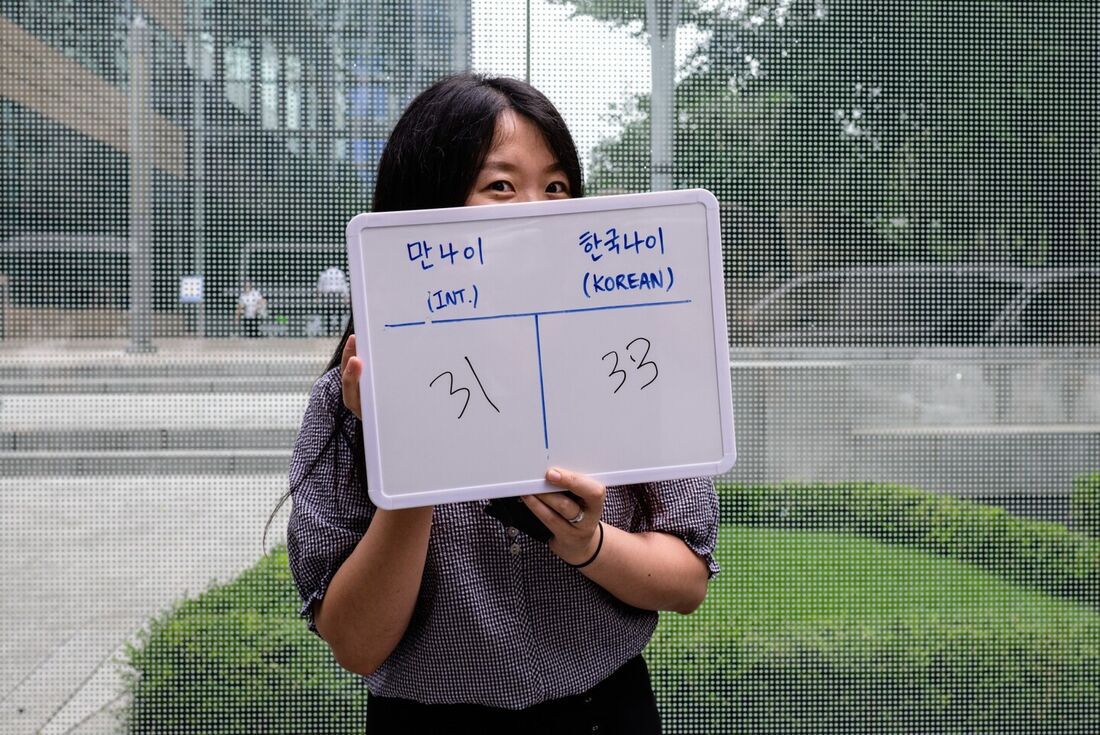 만나이
(INT.)
한국나이
(KOREAN)
31
33